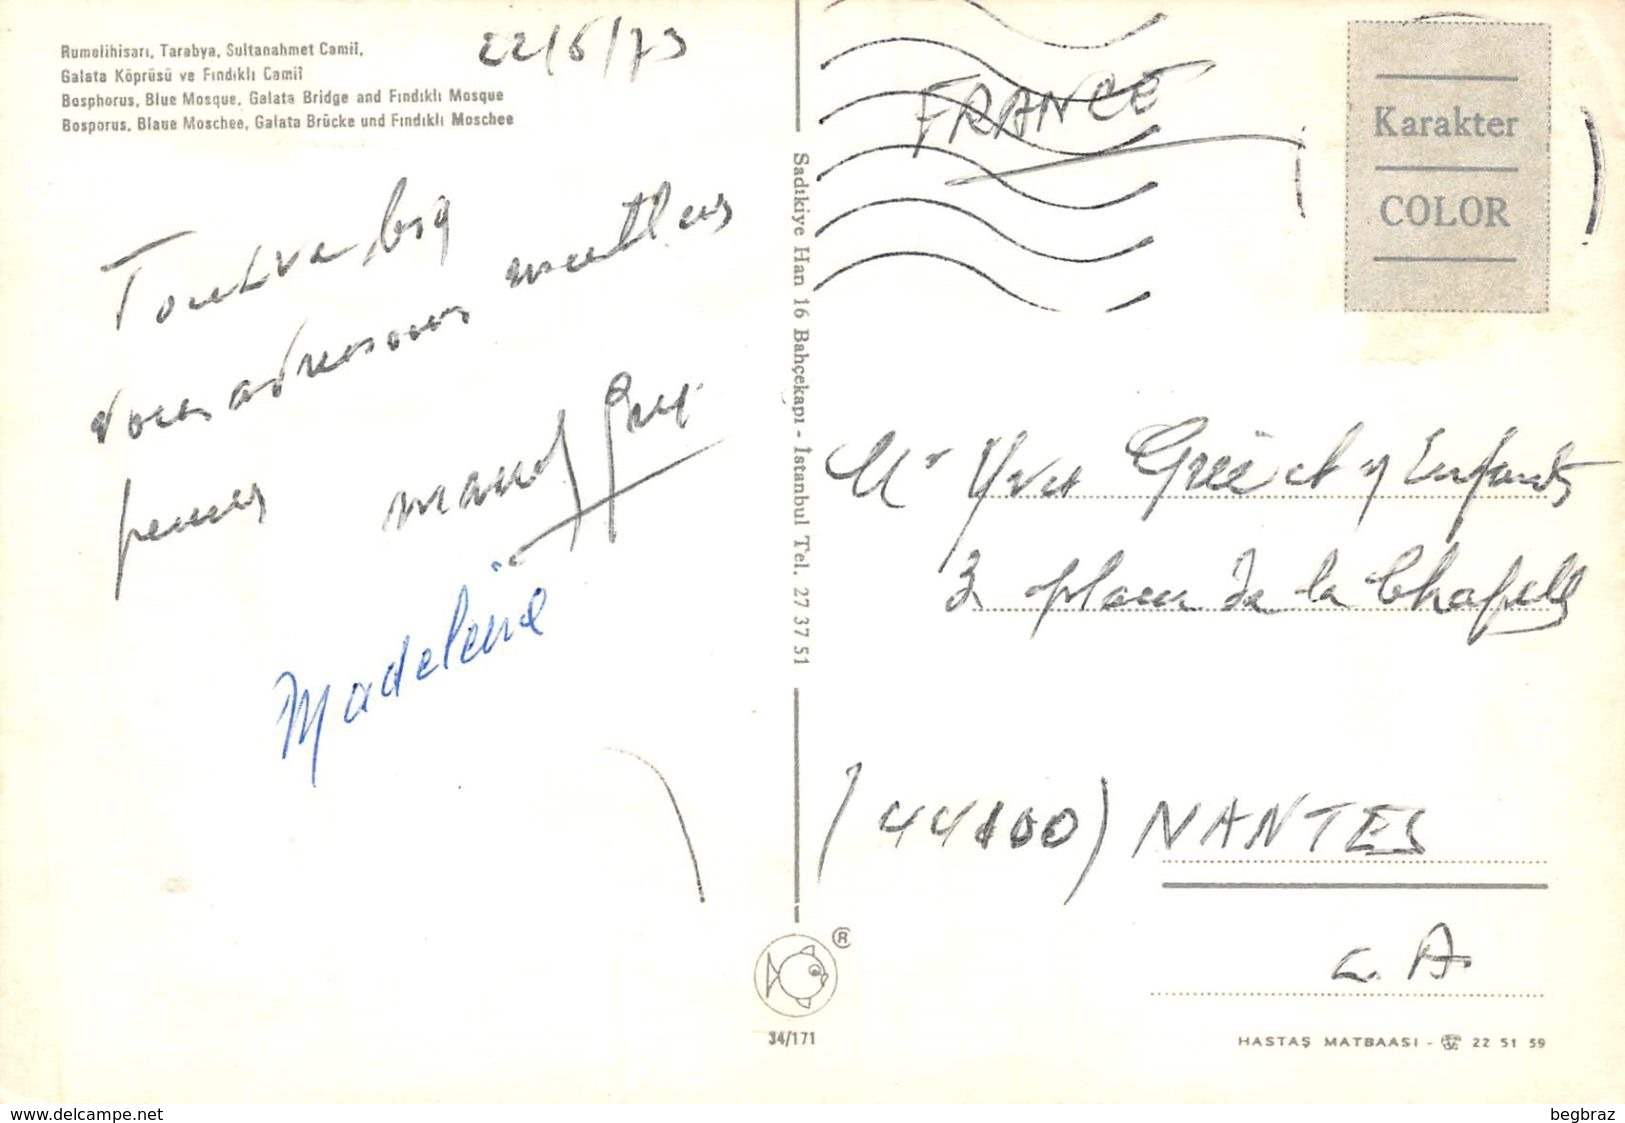 Rumelihisarı, Tarabya, Sultanahmet Camiî,
Galata Köprüsü ve Fındıklı Camiî
Bosphorus, Blue Mosque, Galata Bridge and Fındıklı Mosque
Bosporus, Blaue Moschee, Galata Brücke und Fındıklı Moschee
22/6/73
Tout va bien
vous adressons meilleures
pensées
Madeleine
Sadıkiye Han 16 Bahçekapı - İstanbul Tel. 27 37 51
®
34/171
FRANCE
Karakter
COLOR
Mr Yves et Enfants
3 place de la Chapelle
(44100) NANTES
L. A.
HASTAŞ MATBAASI - 22 51 59
www.delcampe.net
begbraz